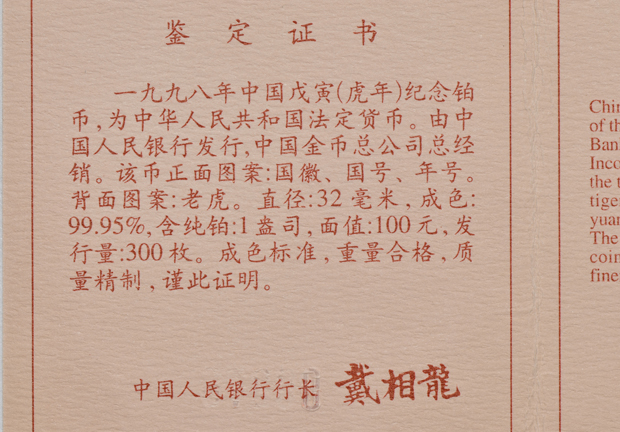 鉴定证书
一九九八年中国戊寅(虎年)纪念铂
币,为中华人民共和国法定货币。由中
国人民银行发行,中国金币总公司总经
销。该币正面图案:国徽、国号、年号。
背面图案:老虎。直径:32毫米,成色:
99.95%,含纯铂:1盎司,面值:100元,发
行量:300枚。成色标准,重量合格,质
量精制,谨此证明。
中国人民银行行长 戴相龍
Chin
of th
Ban
Inco
the t
tige
yuan
The
coin
fine